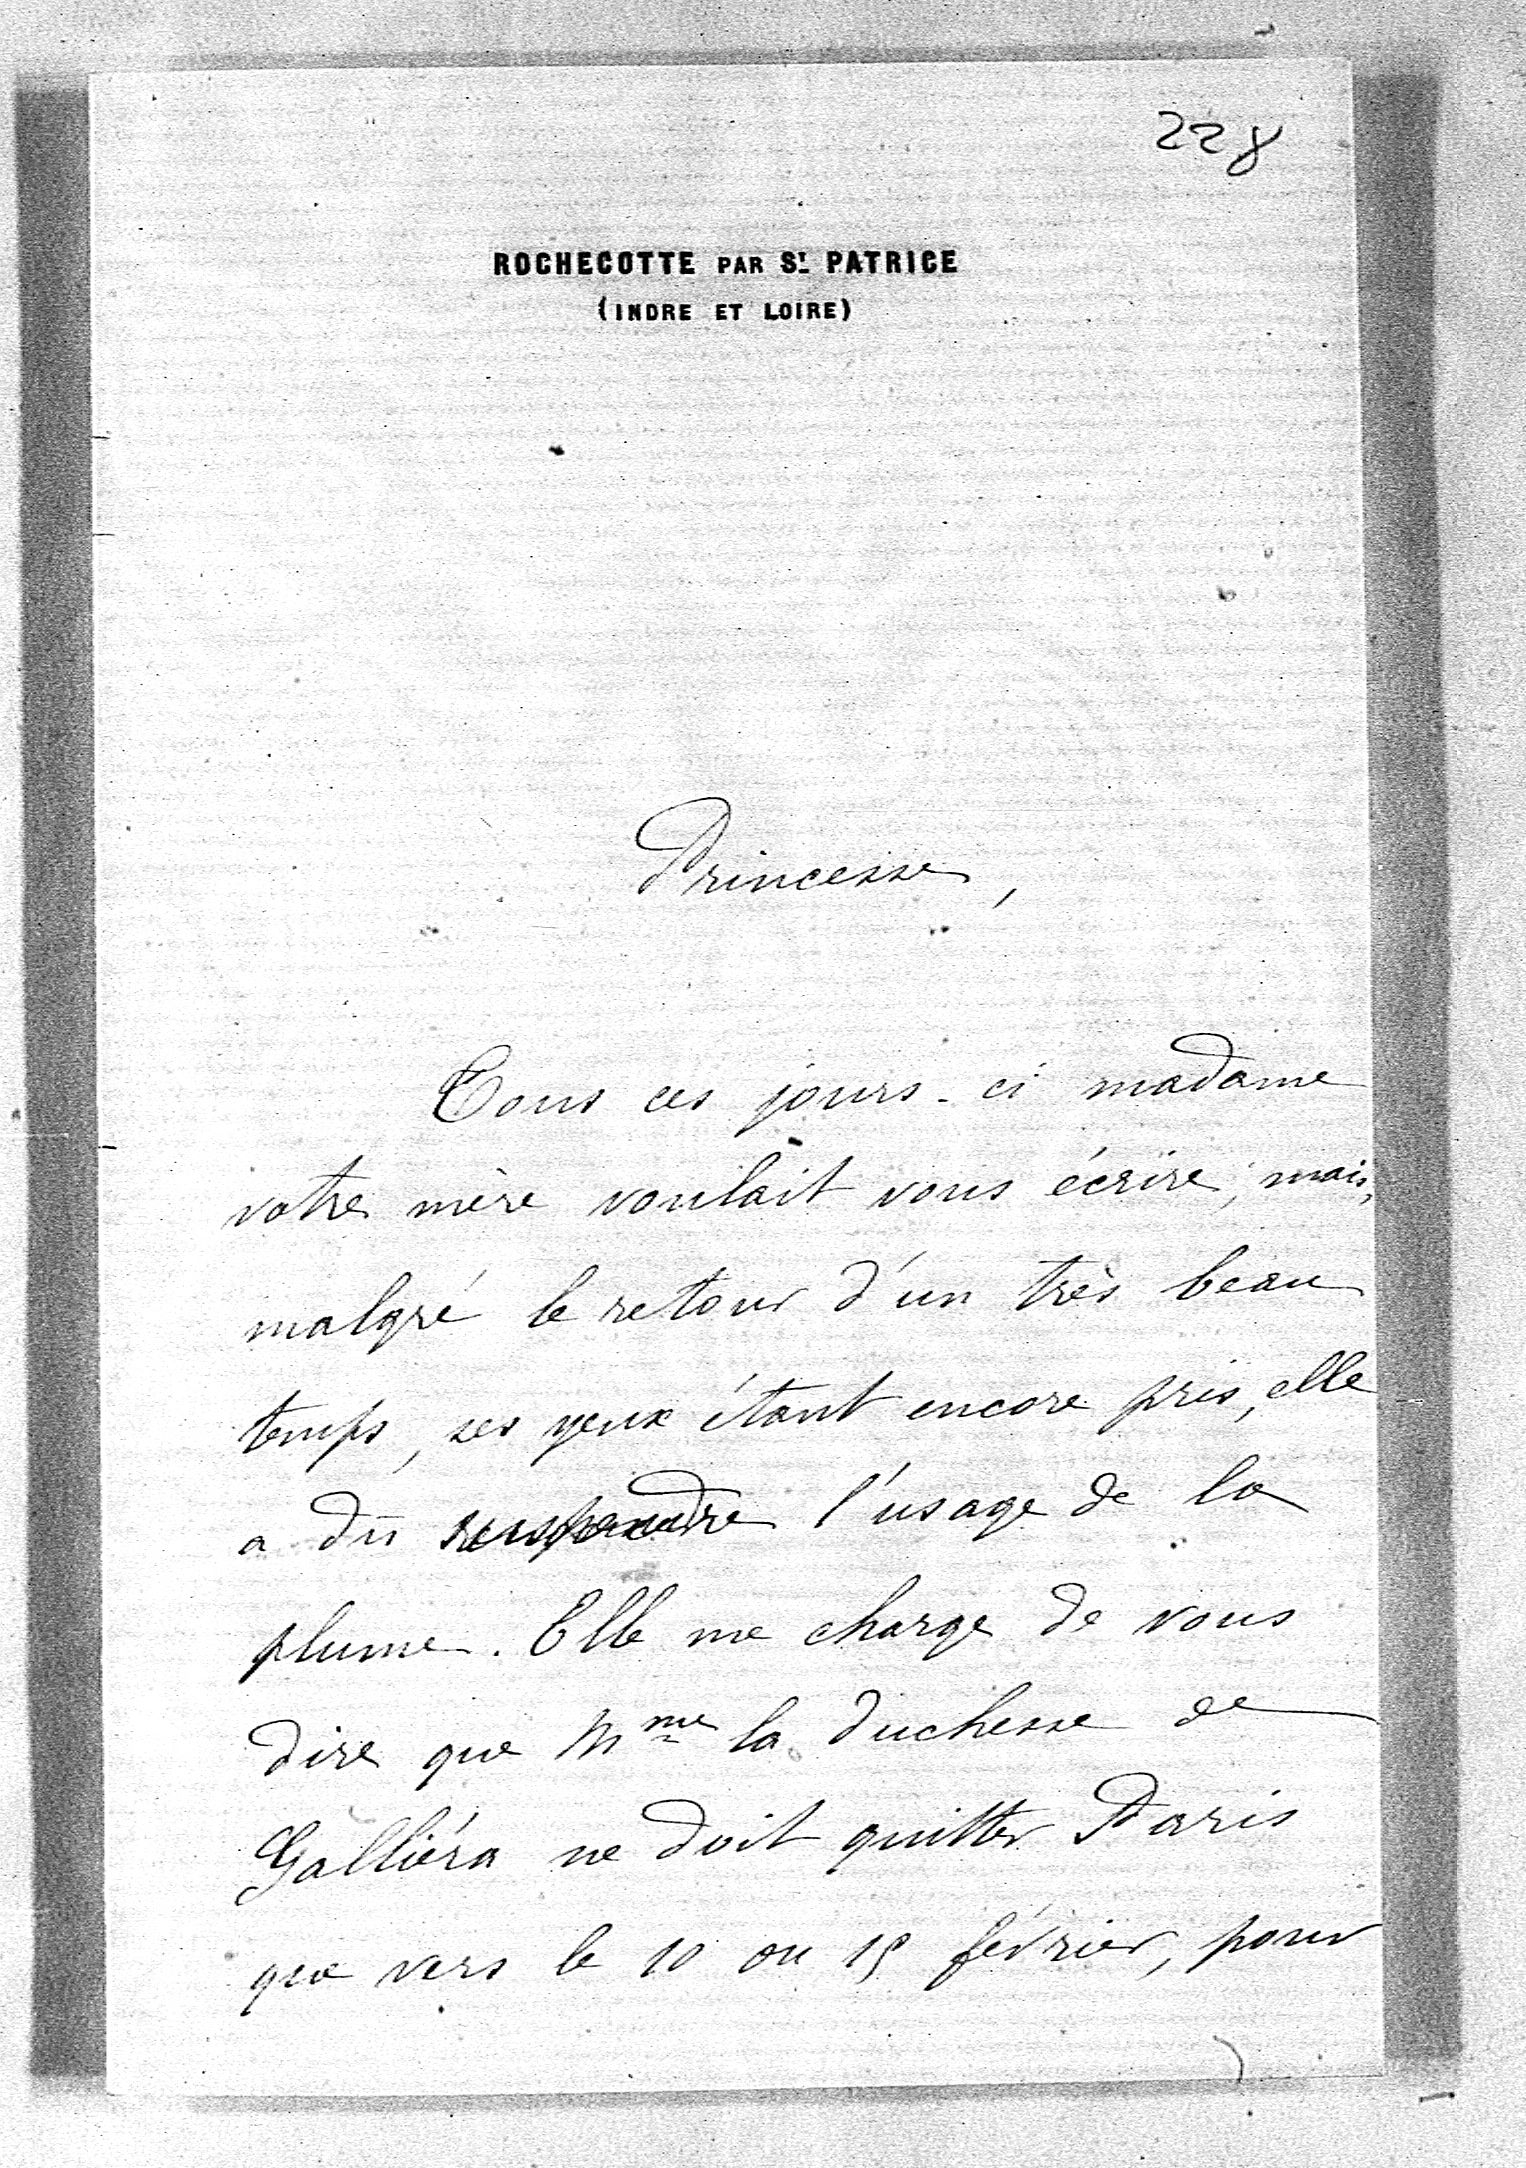 228
ROCHECOTTE PAR ST PATRICE
(INDRE ET LOIRE)
Princesse,
Tous ces jours-ci madame
votre mère voulait vous écrire, mais,
malgré le retour d'un très beau
temps, ses yeux étant encore pris, elle
a dû suspendre l'usage de la
plume. Elle me charge de vous
dire que Mme la duchesse de
Galliéra ne doit quitter Paris
que vers le 10 ou 15 février, pour